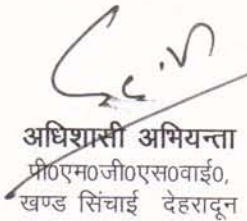 अधिशासी अभियन्ता
पी0एम0जी0एस0वाई0,
खण्ड सिंचाई देहरादून